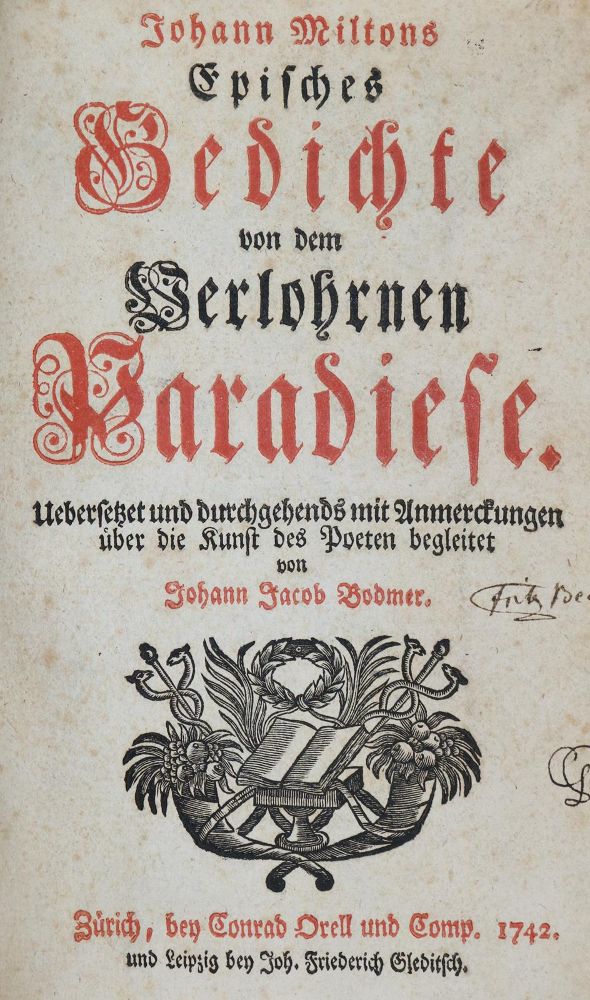 Johann Miltons
Episches
Gedichte
von dem
Verlohrnen
Paradiese.
Uebersetzet und durchgehends mit Anmerckungen
über die Kunst des Poeten begleitet
von
Johann Jacob Bodmer.
Fritz
Zürich, bey Conrad Orell und Comp. 1742.
und Leipzig bey Joh. Friederich Gleditsch.